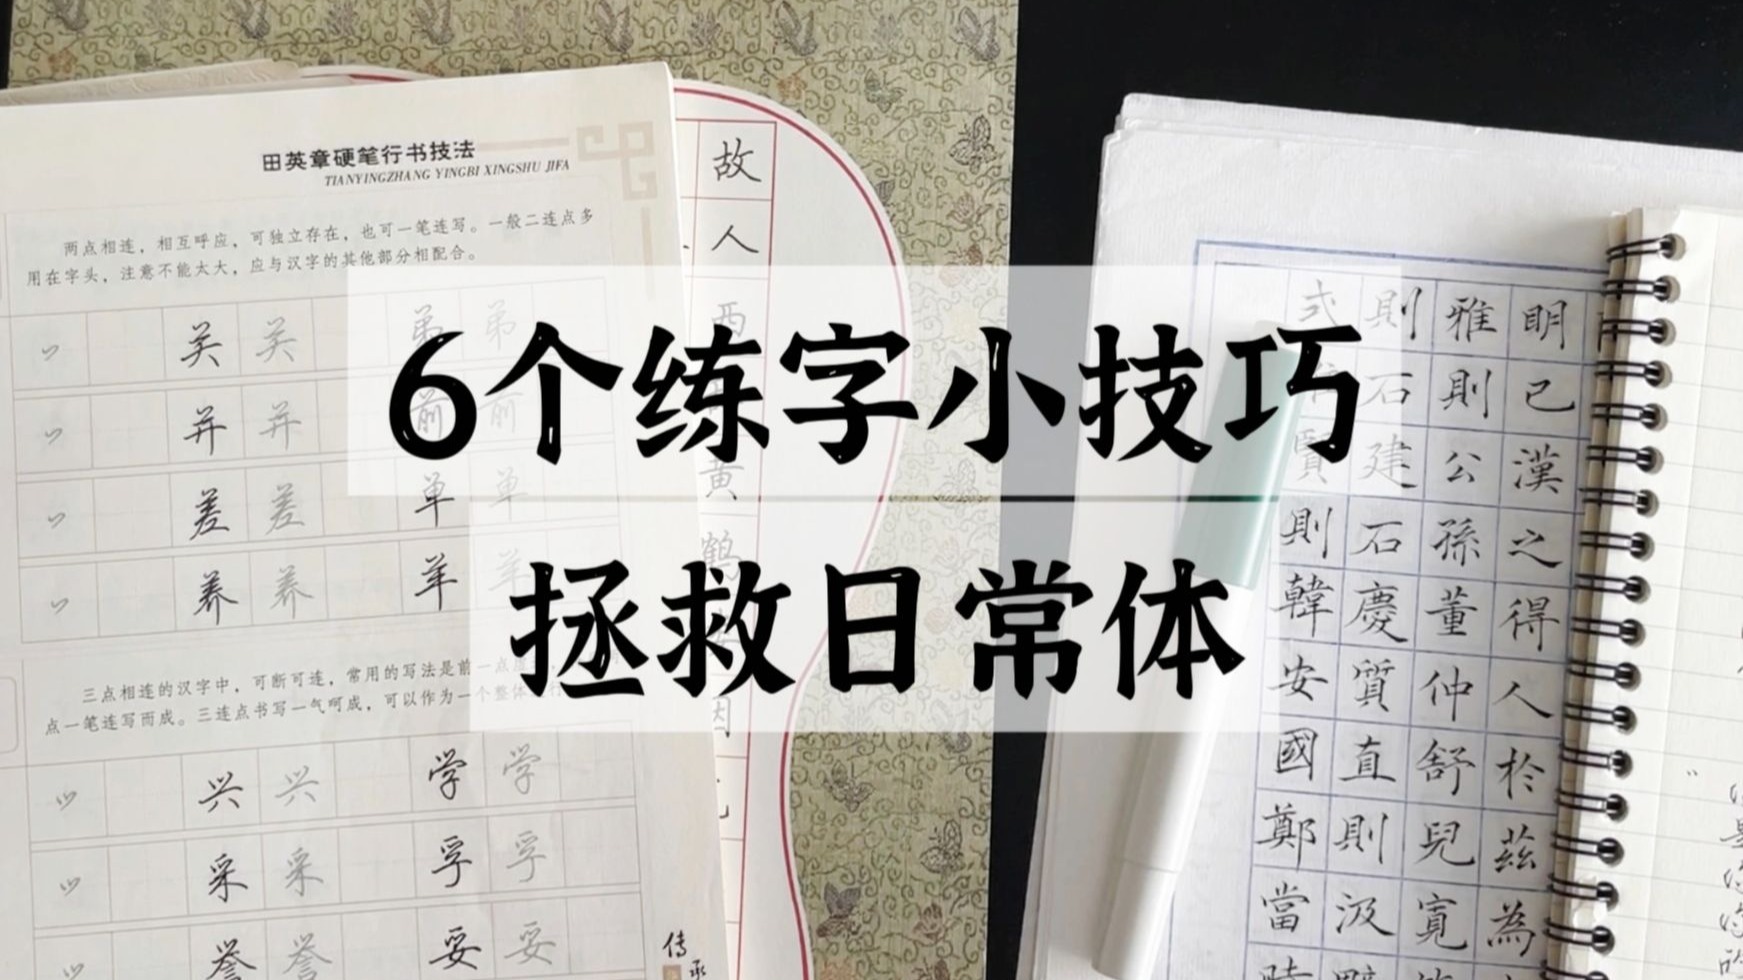 6个练字小技巧
拯救日常体
田英章硬笔行书技法
TIANYINGZHANG YINGBI XINGSHU JIFA
两点相连，相互呼应，可独立存在，也可一笔连写。一般二连点多
用在字头，注意不能太大，应与汉字的其他部分相配合。
关 关 弟 弟
并 并 前 前
差 差 单 单
养 养 羊 羊
三点相连的汉字中，可断可连，常用的写法是前一点
点一笔连写而成。三连点书写一气呵成，可以作为一个整体
兴 兴 学 学
采 采 孚 孚
誉 誉 妥 妥
传承
故人西
黄鹤
明已漢之得人於茲為
雅則公孫董仲舒兒寬
則石建石慶質直則汲
式
賢
則韓安國鄭當時